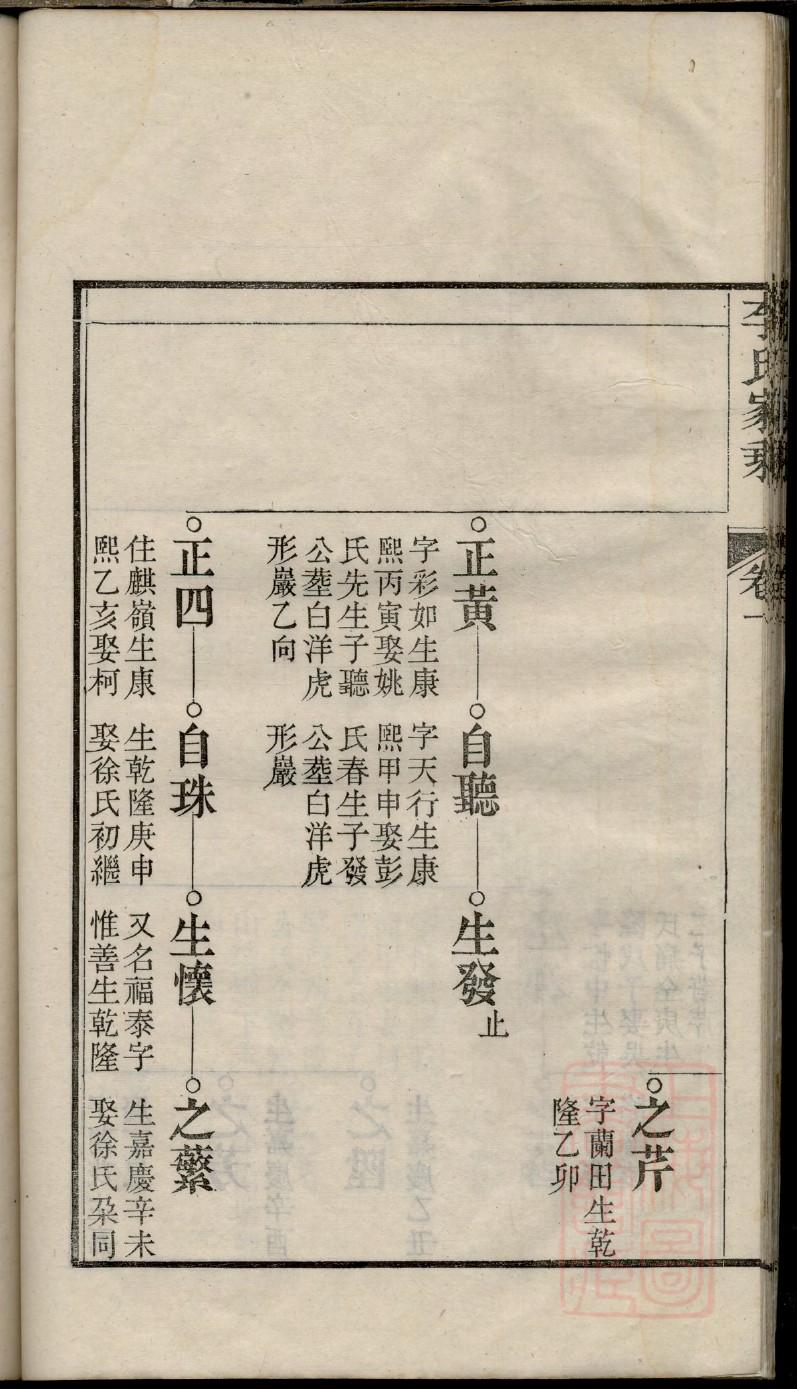 李氏家乘
卷一
之芹
字蘭田生乾
隆乙卯
正黃
字彩如生康
熙丙寅娶姚
氏先生子聽
公塟白洋虎
形巖乙向
自聽
字天行生康
熙甲申娶彭
氏春生子發
公塟白洋虎
形巖
生發止
正四
住麒嶺生康
熙乙亥娶柯
自珠
生乾隆庚申
娶徐氏初繼
生懷
又名福泰字
惟善生乾隆
之蘩
生嘉慶辛未
娶徐氏朶同